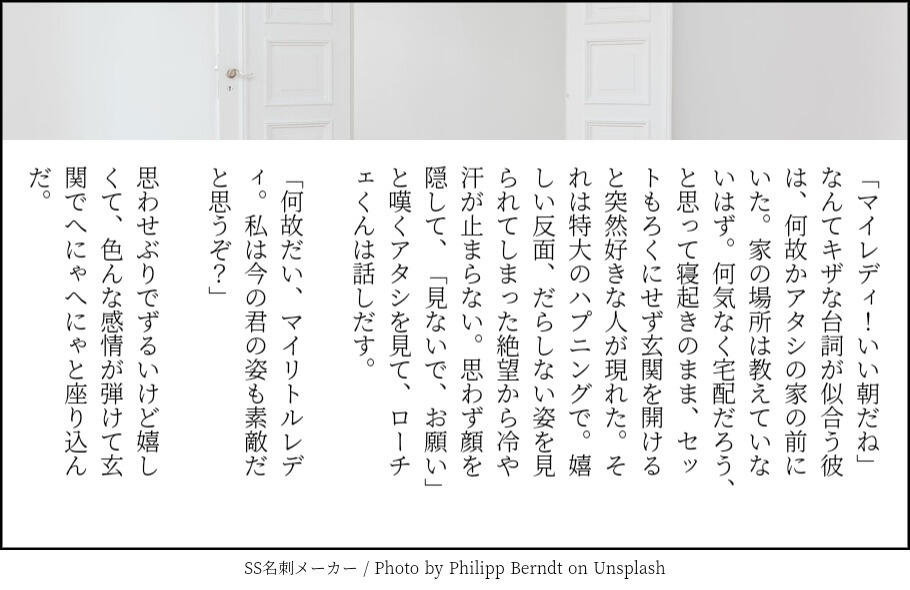 「マイレディ！いい朝だね」
なんてキザな台詞が似合う彼
は、何故かアタシの家の前に
いた。家の場所は教えていな
いはず。何気なく宅配だろう、
と思って寝起きのまま、セッ
トもろくにせず玄関を開ける
と突然好きな人が現れた。そ
れは特大のハプニングで。嬉
しい反面、だらしない姿を見
られてしまった絶望から冷や
汗が止まらない。思わず顔を
隠して、「見ないで、お願い」
と嘆くアタシを見て、ローチ
ェくんは話しだす。
「何故だい、マイリトルレデ
ィ。私は今の君の姿も素敵だ
と思うぞ？」
思わせぶりでずるいけど嬉し
くて、色んな感情が弾けて玄
関でへにゃへにゃと座り込ん
だ。
SS名刺メーカー / Photo by Philipp Berndt on Unsplash